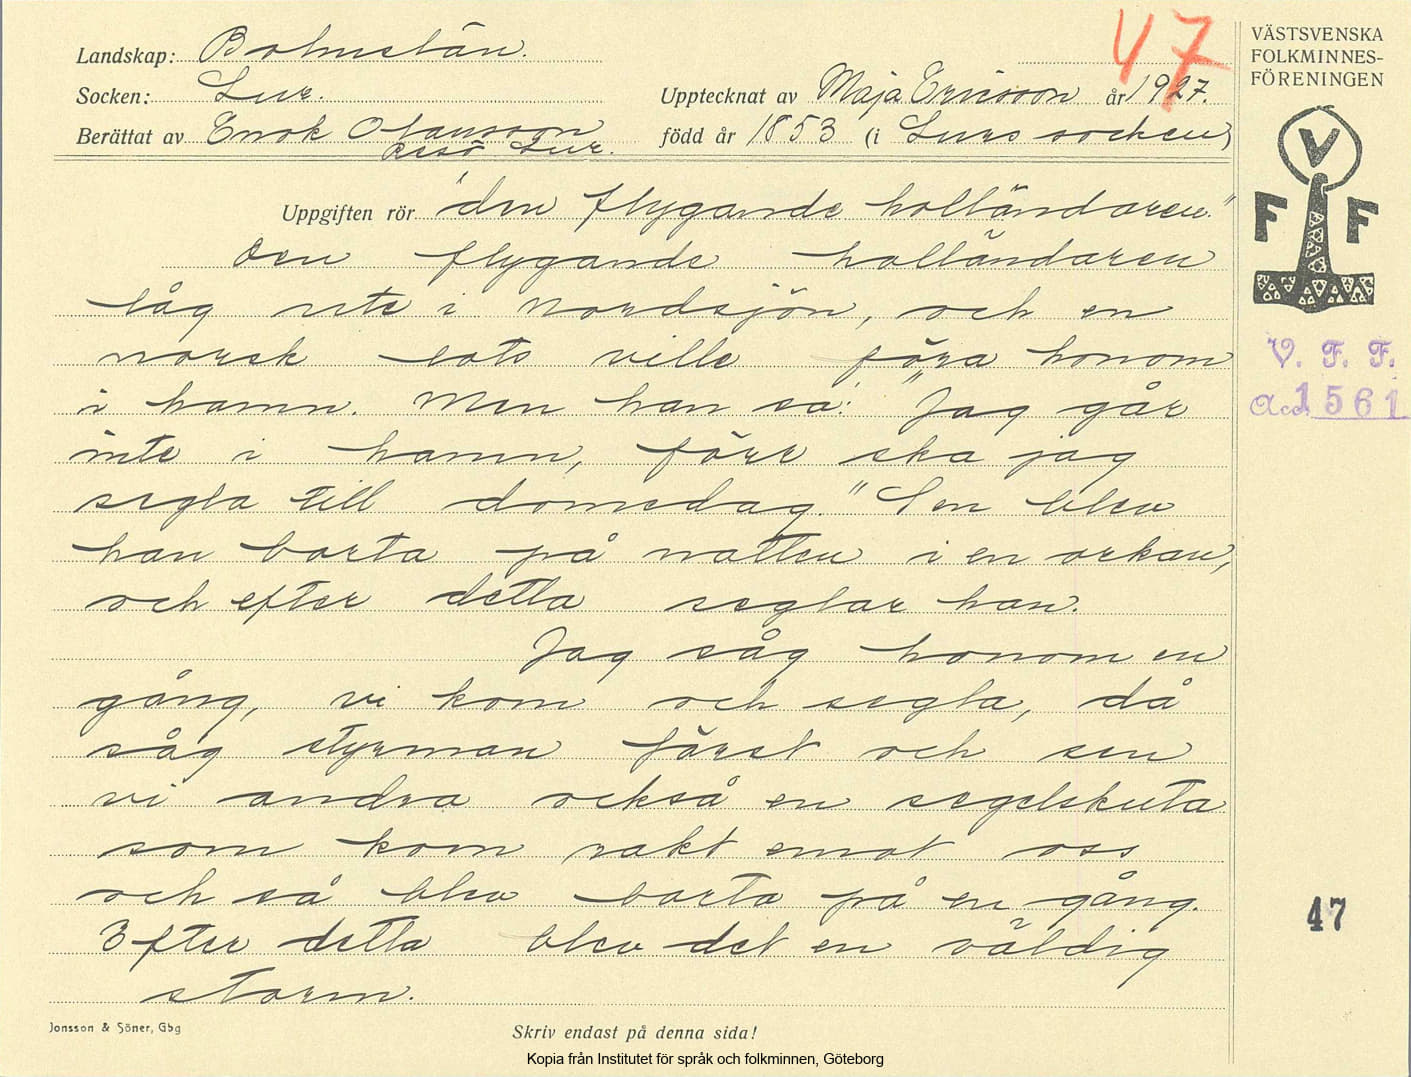 47
Landskap: Bohuslän.
Socken: Lur.
Upptecknat av Maja Ericsson år 1927.
Berättat av Enok Olausson
född år 1853 (i Lurs socken)
Resö Lur.
VÄSTSVENSKA
FOLKMINNES-
FÖRENINGEN
V
F F
V. F. F.
Acc. 1561
Uppgiften rör "den flygande holländaren."
Den flygande holländaren
låg ute i Nordsjön, och en
norsk lots ville föra honom
i hamn. Men han sa: "Jag går
inte i hamn, förr ska jag
segla till domedag." Sen blev
han borta på natten i en orkan,
och efter detta seglar han.
Jag såg honom en
gång, vi kom och segla, då
såg styrman först och sen
vi andra också en segelskuta
som kom rakt emot oss
och så blev borta på en gång.
Efter detta blev det en väldig
storm.
47
Jonsson & Söner, Gbg
Skriv endast på denna sida!
Kopia från Institutet för språk och folkminnen, Göteborg